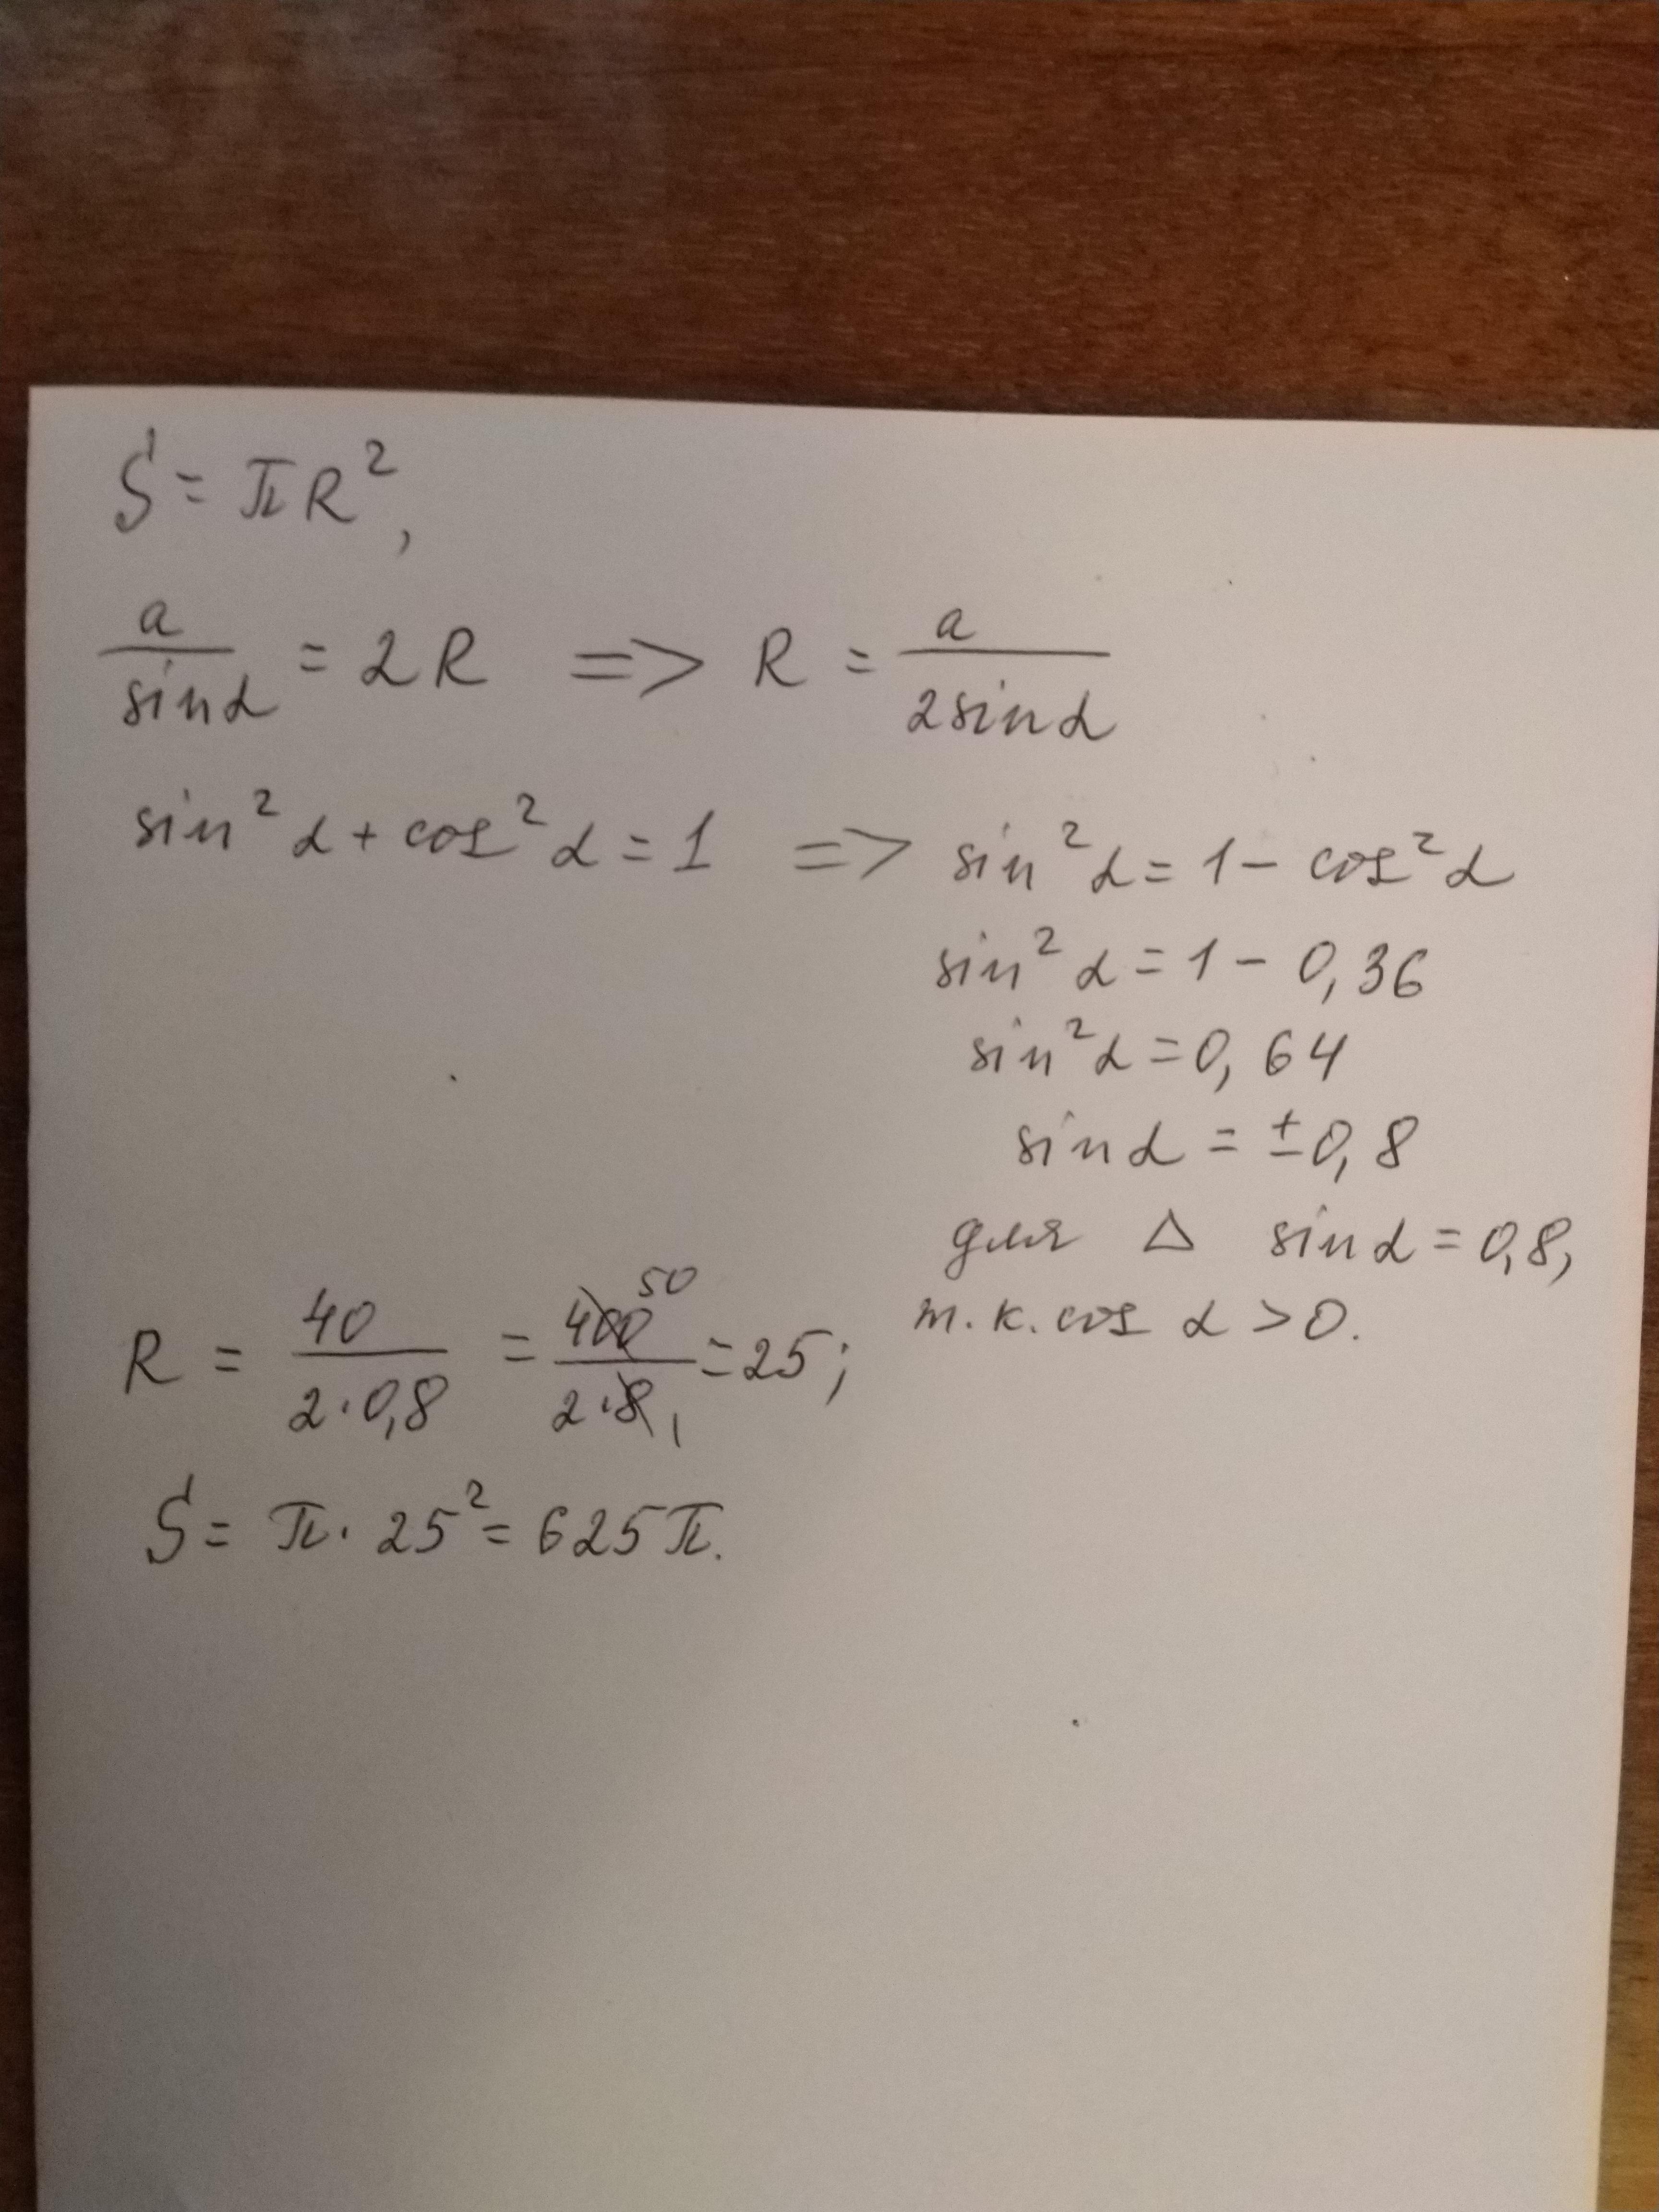 S = πR²,
a/sinα = 2R => R = a/2sinα
sin²α + cos²α = 1 => sin²α = 1 - cos²α
sin²α = 1 - 0,36
sin²α = 0,64
sinα = ±0,8
для △ sinα = 0,8,
т.к. cos α > 0.
R = 40/2·0,8 = 400 50/2·8 1 = 25;
S = π · 25² = 625π.